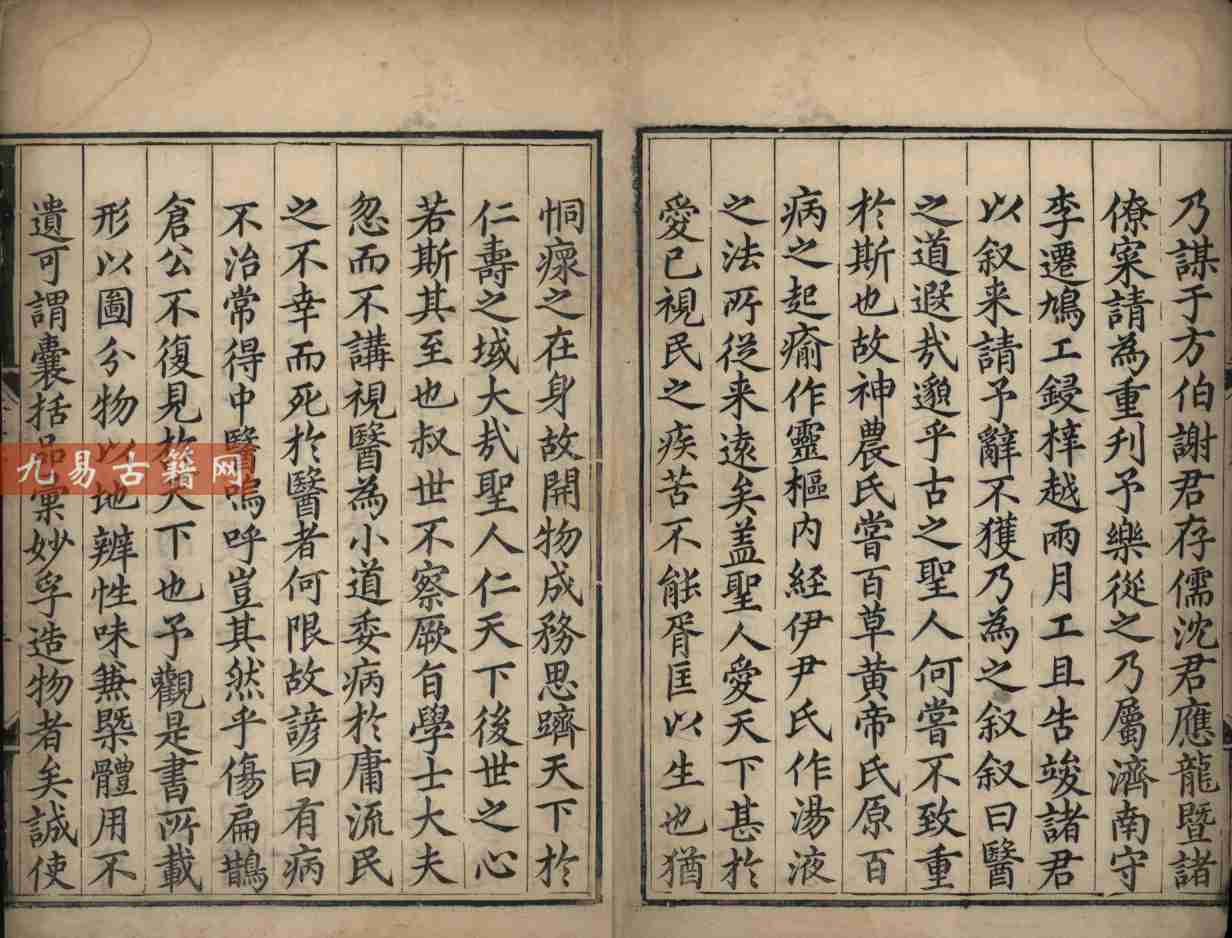 乃謀于方伯謝君存儒沈君應龍暨諸
僚寀請為重刋予樂從之乃屬濟南守
李遷鳩工鋟梓越兩月工且告竣諸君
以叙来請予辭不獲乃為之叙叙曰醫
之道遐㢤邈乎古之聖人何嘗不致重
於斯也故神農氏嘗百草黄帝氏原百
病之起瘉作靈樞内經伊尹氏作湯液
之法所従来遠矣盖聖人愛天下甚於
愛已視民之疾苦不能胥匡以生也猶
恫瘝之在身故開物成務思躋天下於
仁壽之域大㢤聖人仁天下後世之心
若斯其至也叔世不察厥旨學士大夫
忽而不講視醫為小道委病於庸流民
之不幸而死於醫者何限故諺曰有病
不治常得中醫嗚呼豈其然乎傷扁鵲
倉公不復見於天下也予觀是書所載
形以圖分物以地辨性味兼槩體用不
遺可謂囊括品彙妙孚造物者矣誠使
九易古籍网